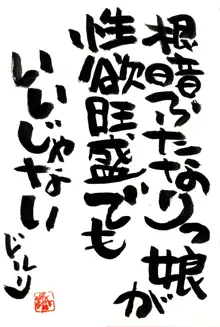 根暗ふたなりっ娘が
性欲旺盛でも
いいじゃない
じんり